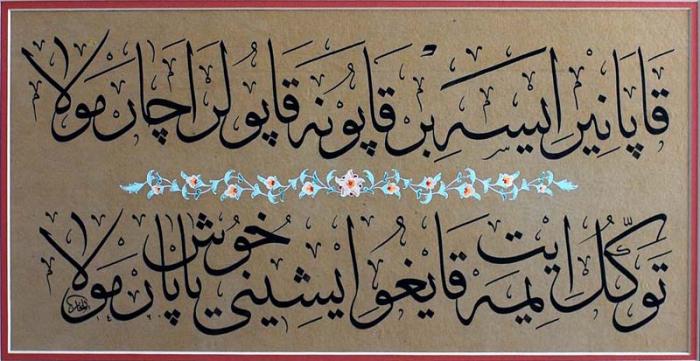 قاپانیر ایسه بر قاپو نه قاپولر آچار مولا
توكّل ایت ییمه قایغو ایشینی خوش یاپار مولا